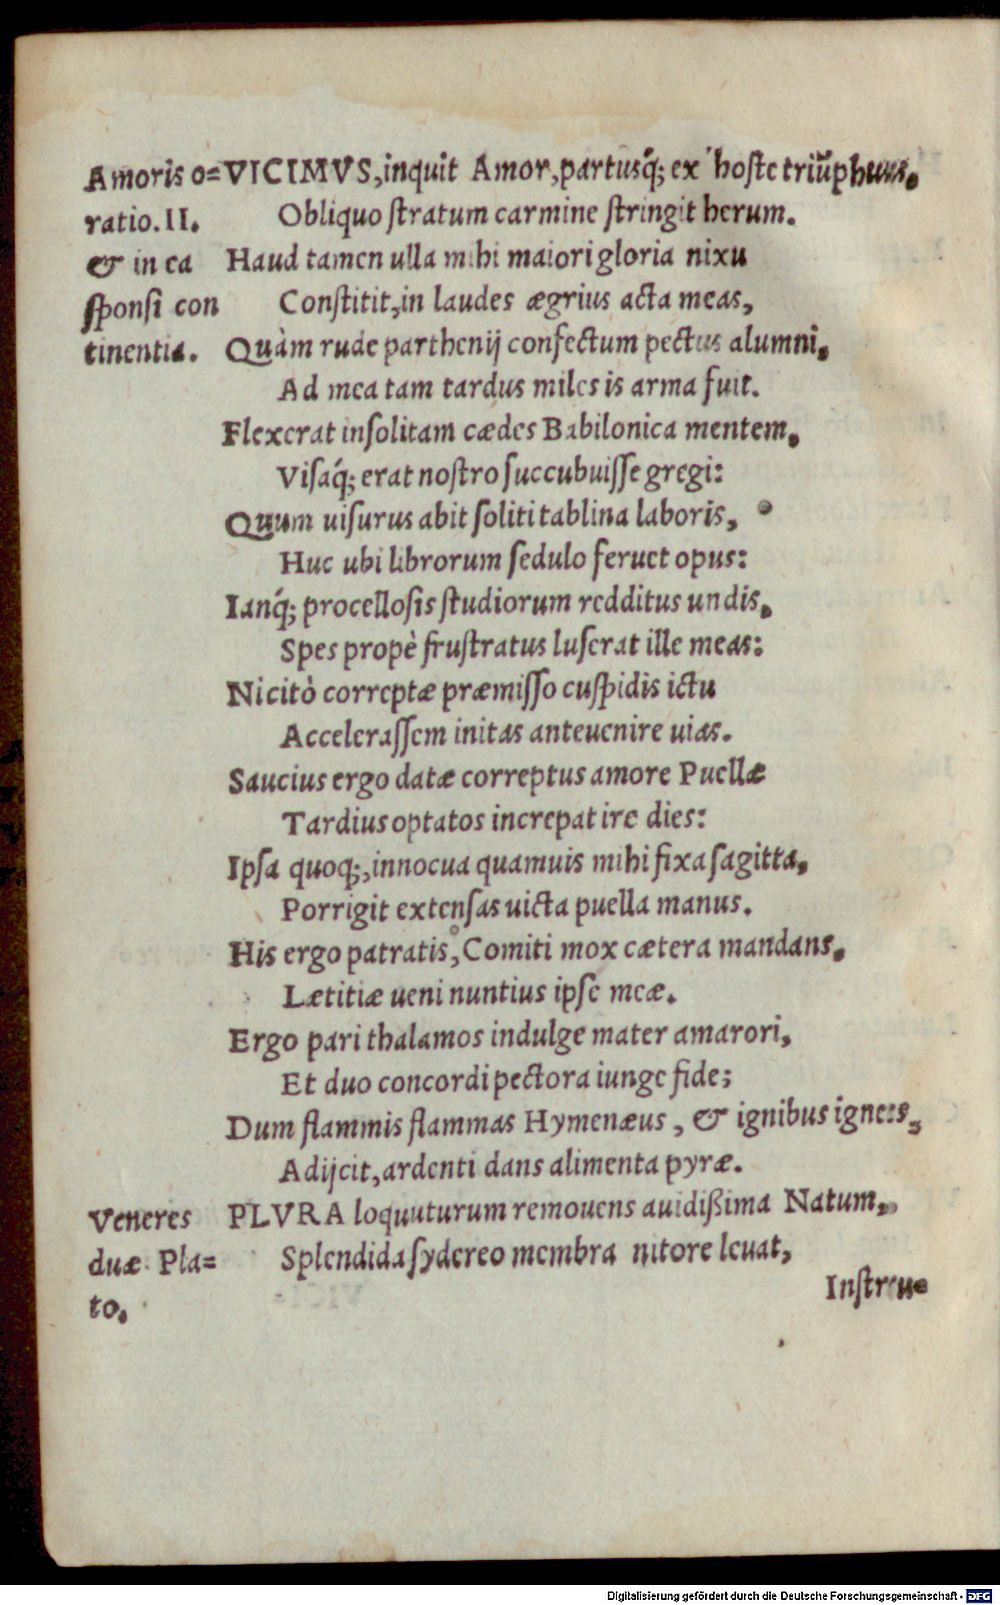 Amoris o= VICIMVS, inquit Amor, partusq́; ex hoste triūphus.
ratio. II. Obliquo stratum carmine stringit herum.
& in ea Haud tamen ulla mihi maiori gloria nixu
sponsi con Constitit, in laudes ægrius acta meas,
tinentia. Quàm rude parthenij confectum pectus alumni,
Ad mea tam tardus miles is arma fuit.
Flexerat insolitam cædes Babilonica mentem,
Visaq́; erat nostro succubuisse gregi:
Quum uisurus abit soliti tablina laboris,
Huc ubi librorum sedulo feruet opus:
Ianq́; procellosis studiorum redditus undis,
Spes propè frustratus luserat ille meas:
Ni citò correptæ præmisso cuspidis ictu
Accelerassem initas anteuenire uias.
Saucius ergo datæ correptus amore Puellæ
Tardius optatos increpat ire dies:
Ipsa quoq;, innocua quamuis mihi fixa sagitta,
Porrigit extensas uicta puella manus.
His ergo patratis, Comiti mox cætera mandans,
Lætitiæ ueni nuntius ipse meæ.
Ergo pari thalamos indulge mater amarori,
Et duo concordi pectora iunge fide;
Dum flammis flammas Hymenæus, & ignibus ignes,
Adijcit, ardenti dans alimenta pyræ.
Veneres PLVRA loquuturum remouens auidißima Natum,
duæ Pla= Splendida sydereo membra nitore leuat,
to. Instru=
Digitalisierung gefördert durch die Deutsche Forschungsgemeinschaft - DFG